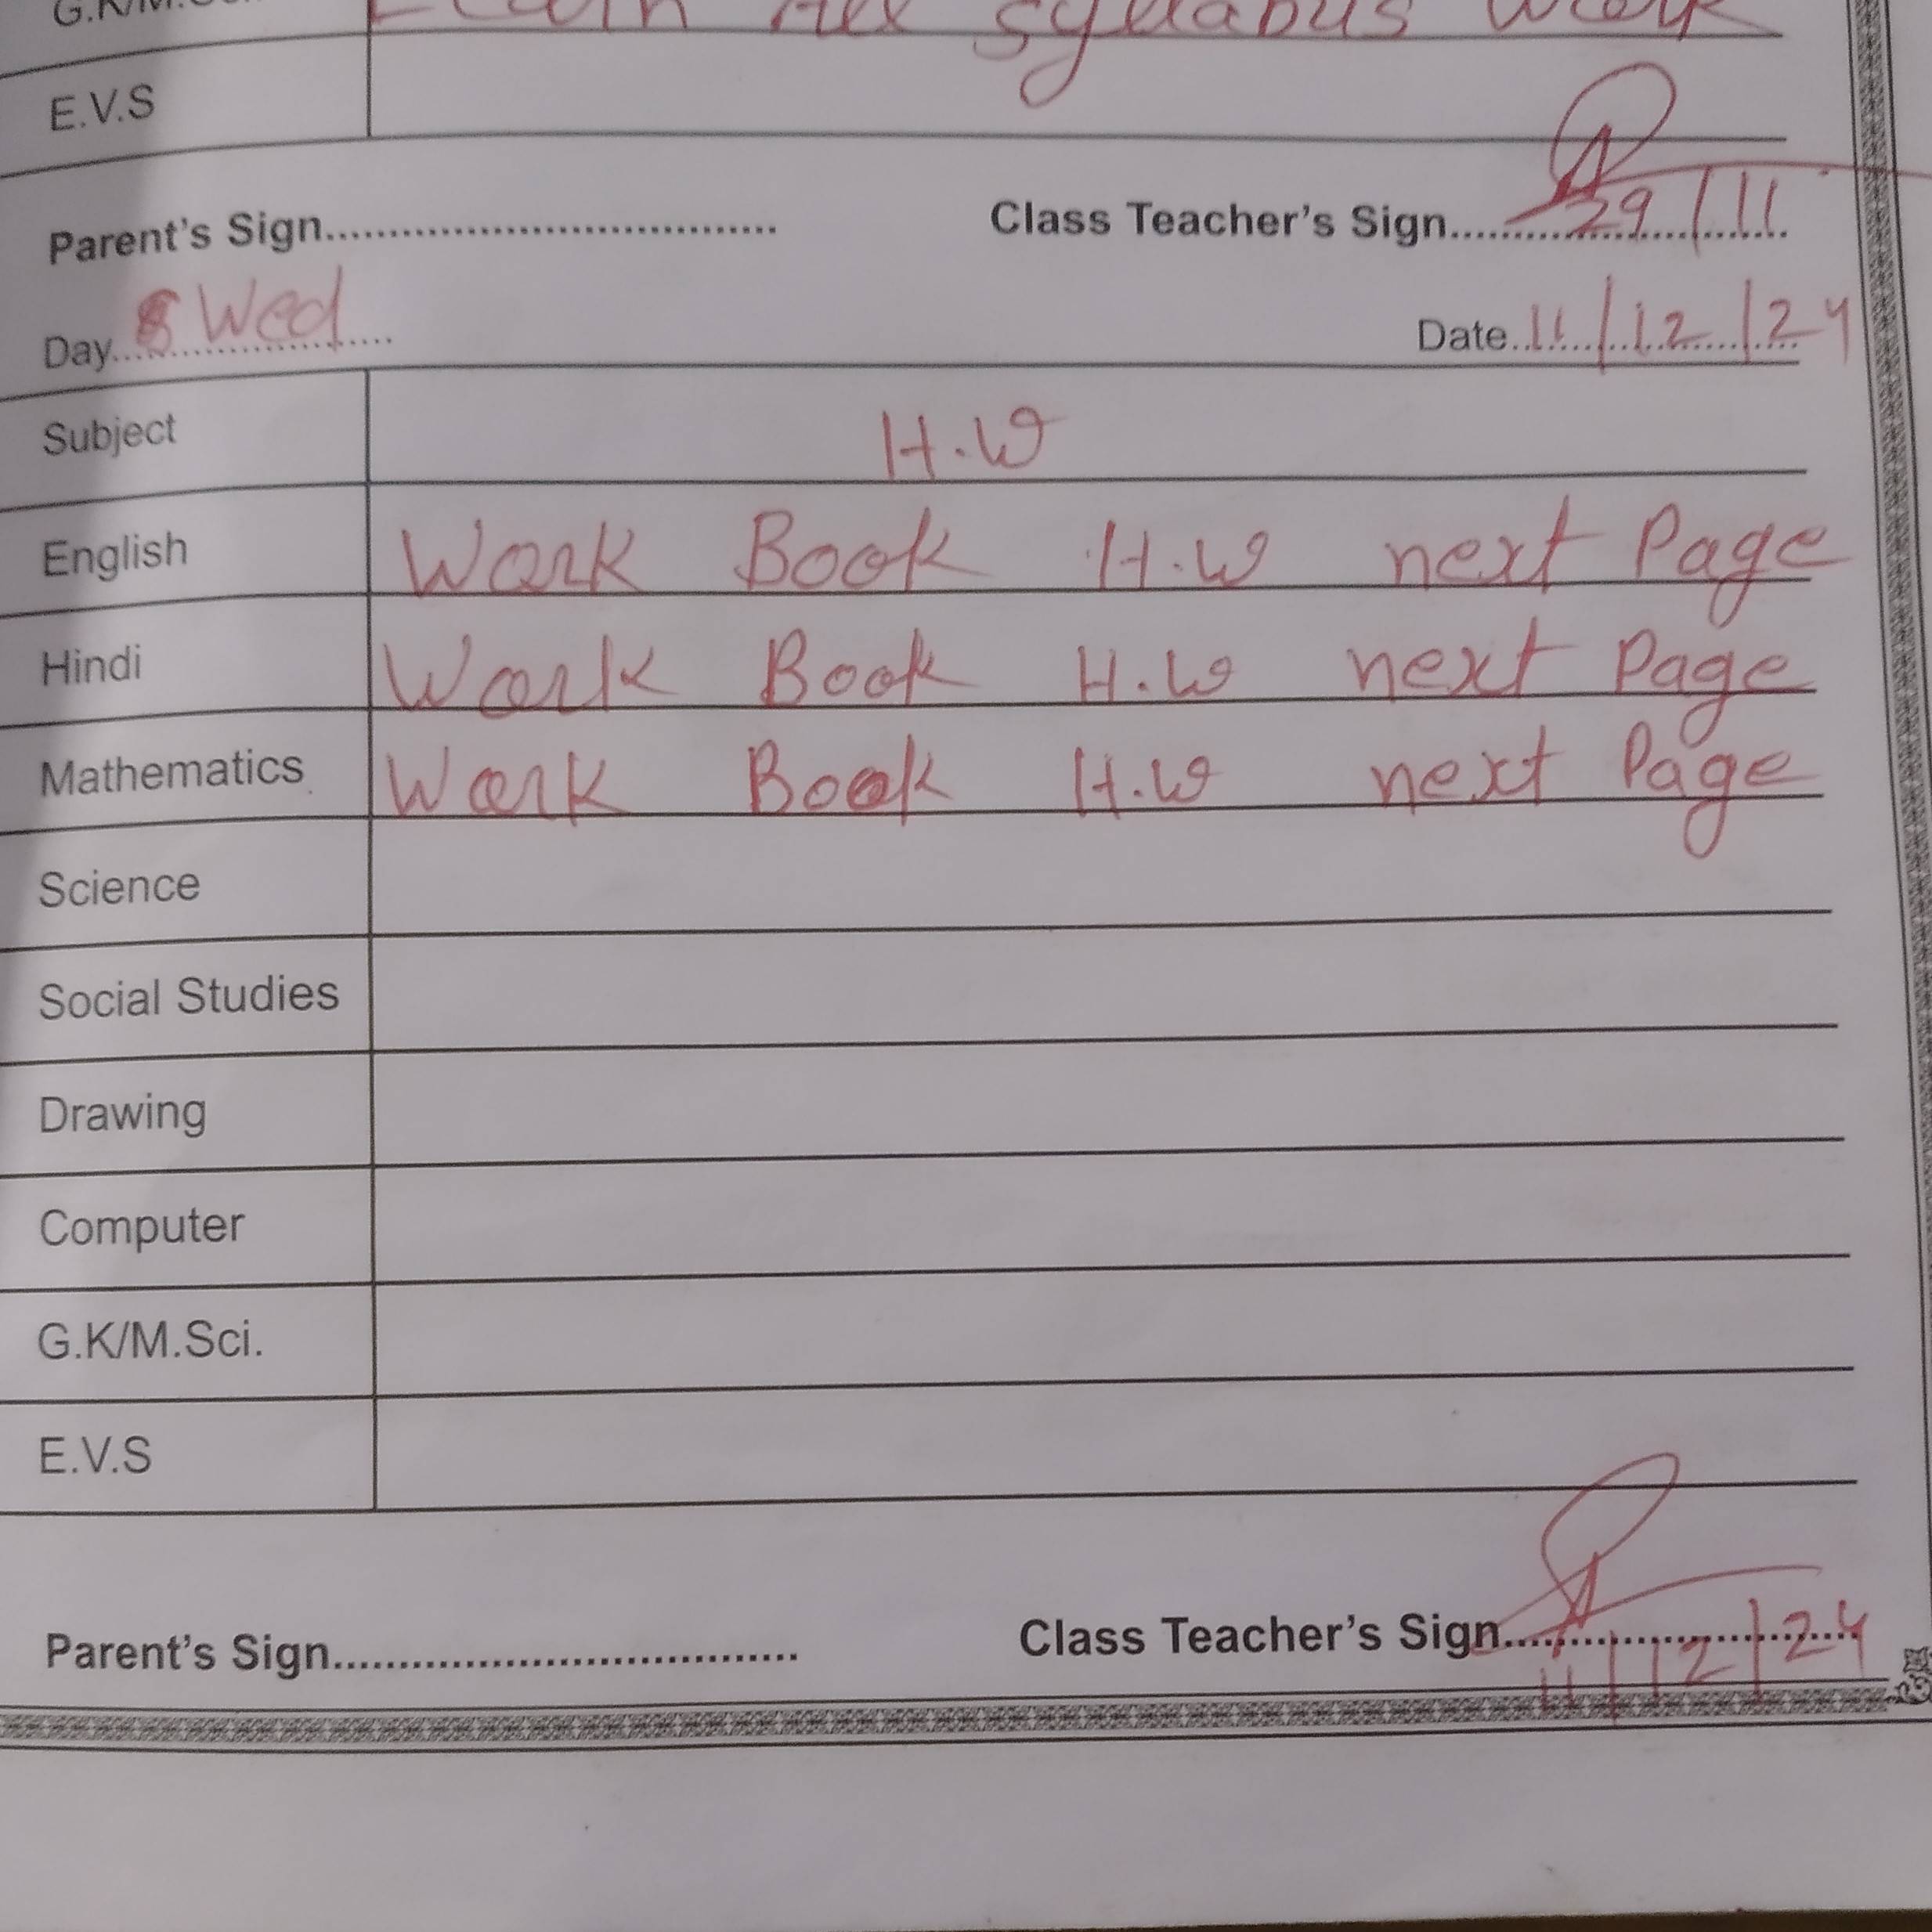 Learn All syllabus work
E.V.S
Parent's Sign.................................... Class Teacher's Sign..............................
29/11
Day Wed Date 11/12/24
Subject H.W
English Work Book H.W next Page
Hindi Work Book H.W next Page
Mathematics Work Book H.W next Page
Science
Social Studies
Drawing
Computer
G.K/M.Sci.
E.V.S
Parent's Sign.................................... Class Teacher's Sign..............................
11/12/24